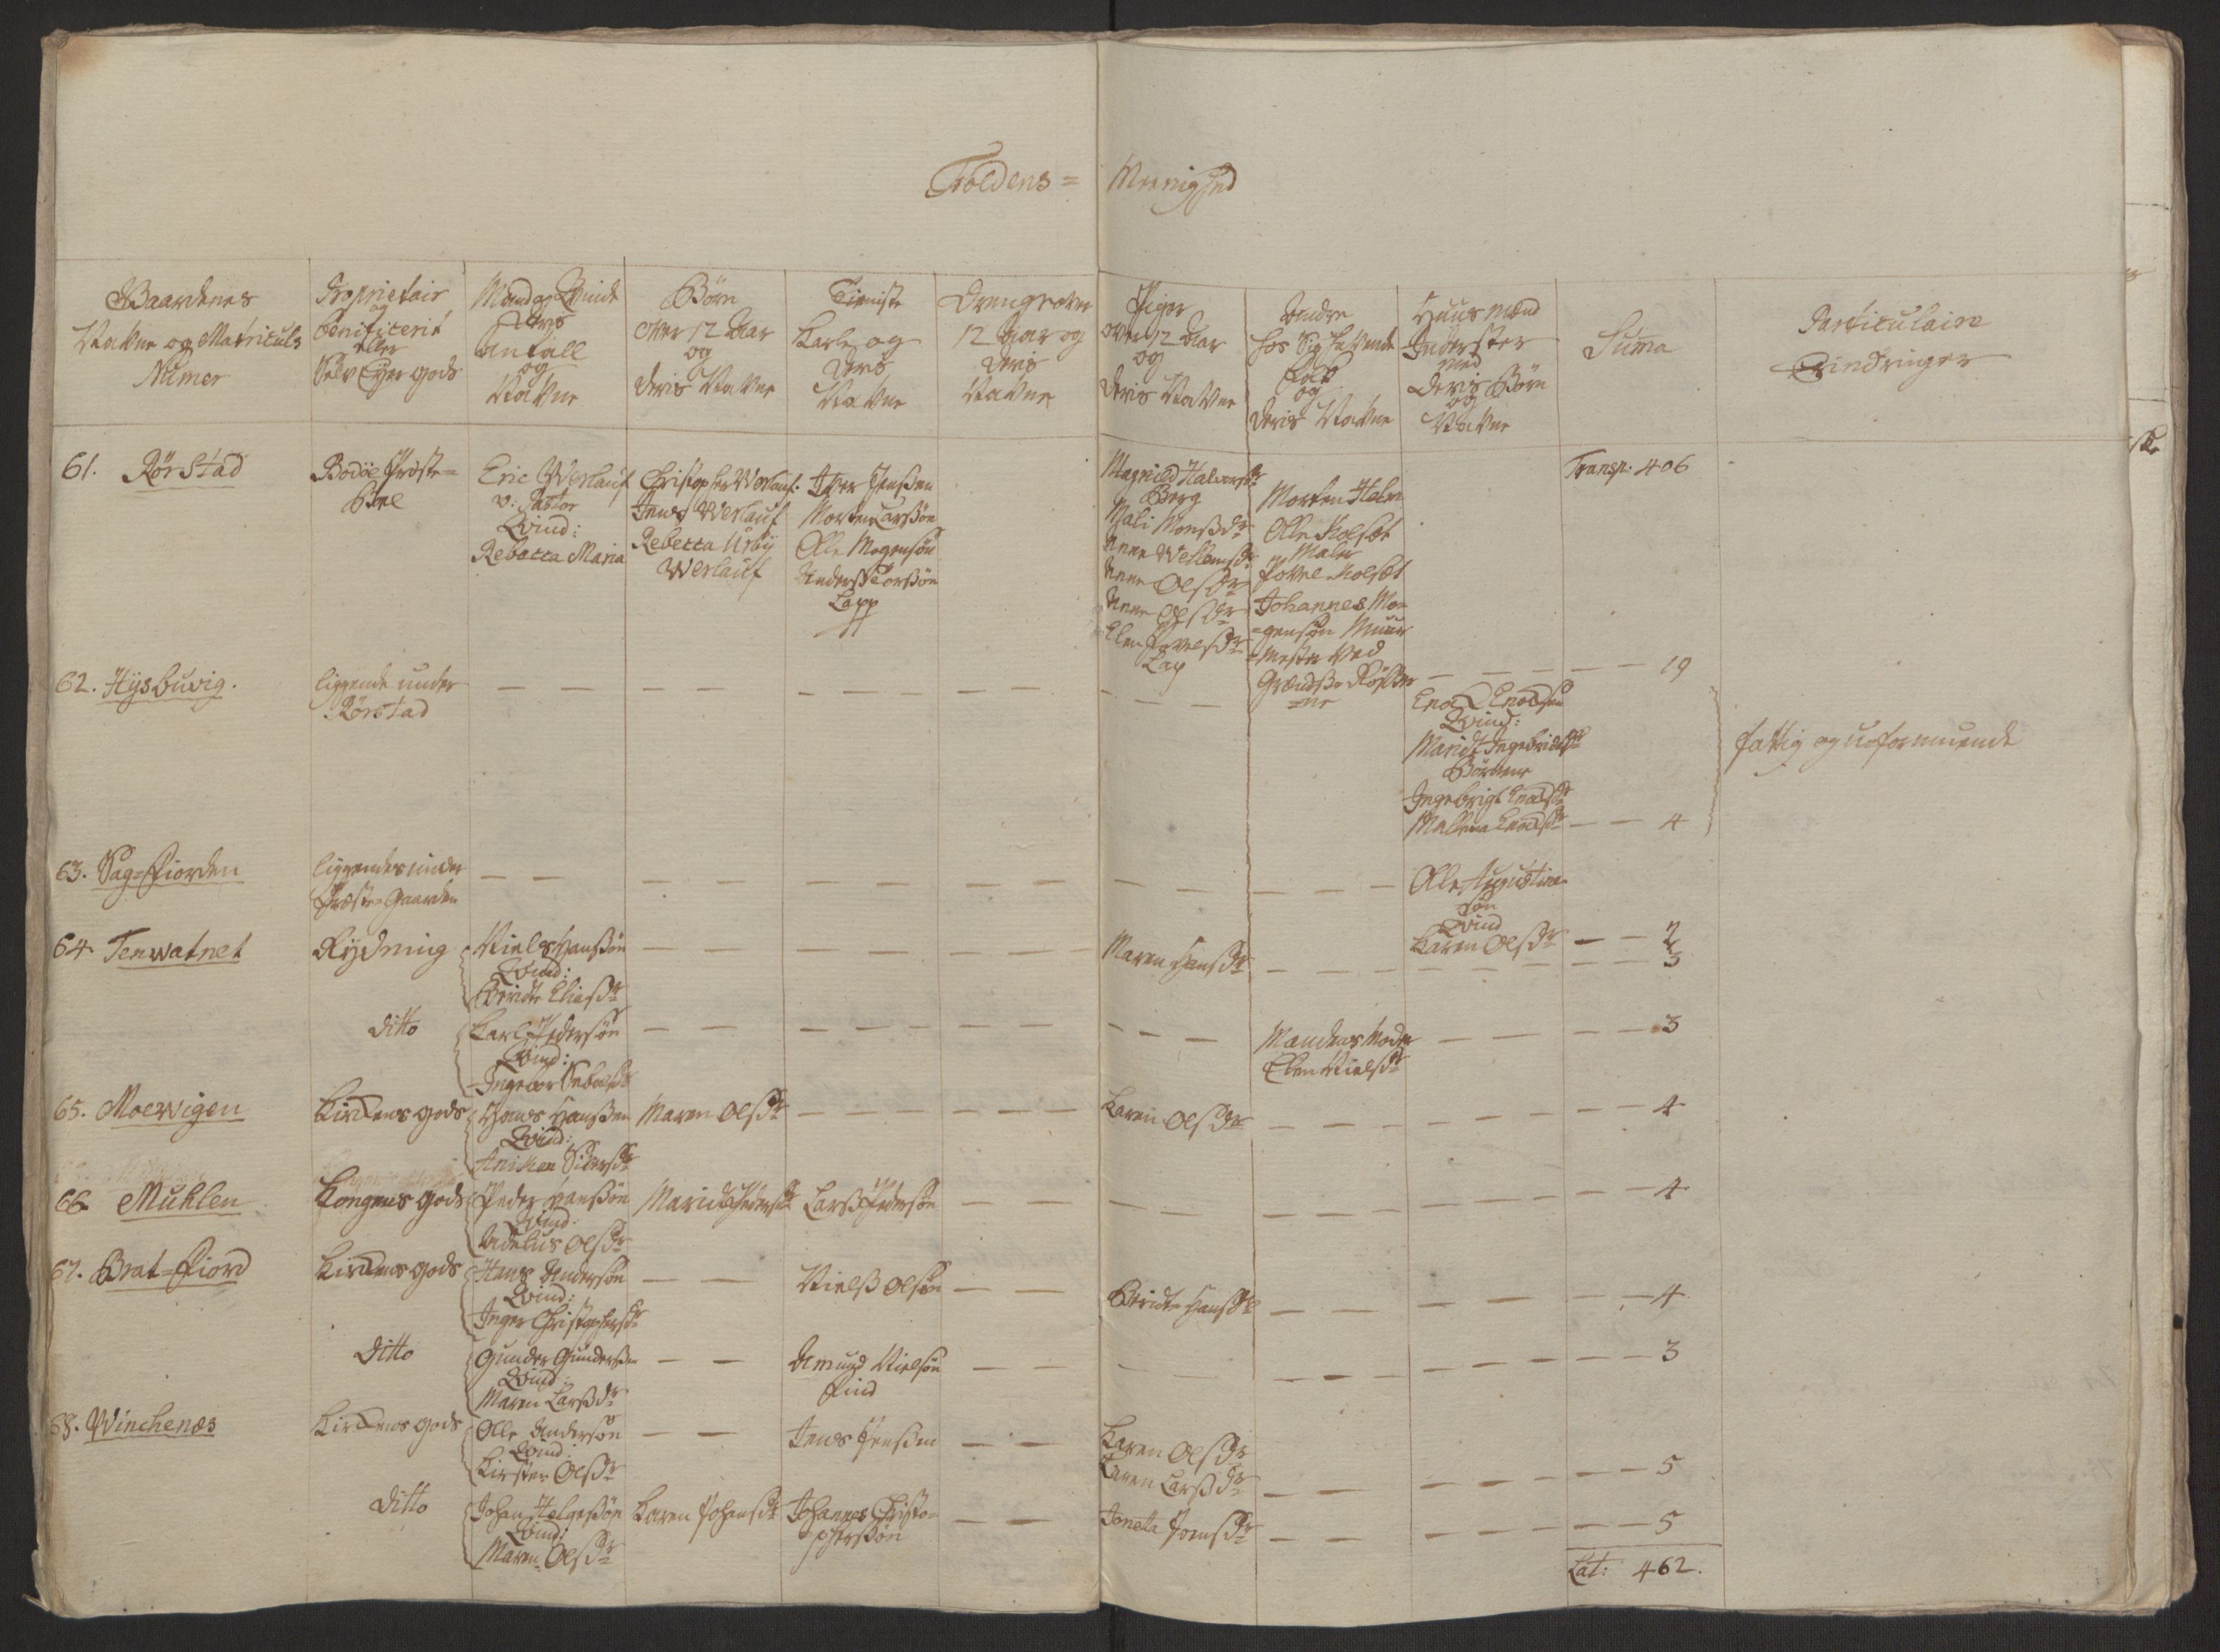 Foldens= Meenighed
Gaardenes
Nafne og Matriculs
Numer
Proprietair
og
beneficerit
eller
Selv Eyer gods
Mand og Qvinde
deris
antall
og
Nafne
Børn
over 12 Aar
og
deris Nafne
Tieniste
Karle og
deris
Nafne
Drenge over
12 Aar og
deris
Nafne
Piger
over 12 Aar
og
deris Nafne
Andre
hos Sig hafvende
Folk
og
deris Nafne
Huusmænd
Inderster
med
deris Børn
og
Nafne
Suma
Particulaire
Erindringer
61. Rörstad
Bodöe Præste=
Bol
Eric Werlauf
v: Pastor
Qvind:
Rebecca Maria
Christopher Werlauf.
Jens Werlauf
Rebecca Urbÿ
Werlauf
Iver Jensen
Morten Larsßön
Olle Mogensön
Anders Torsßön
Lapp
Magnild Halvorsdr
Berg
Mali Monsßdr
Anne Wellomsdr
Anne Olsdr
Anne Olsdr
Elen Povelsdr
Lap
Morten Holm
Olle Kolset
Maler
Povel Kolset
Johannes Mo=
=gensön Muur
=Mester ved
Grændse Røsßer
=ne
Transp: 406
19
62. Hÿsbuvig.
liggende under
Rörstad
Enoch Enochsen
Qvind:
Marit Ingebrictsdr
Börnene
Ingebrigt Enochsdr
Mallena Enochsdr
4
fattig og uformuende
63. Sag=Fiorden
liggendes under
Præste=Gaarden
Olle Augustin
sön
Qvind
Karen Olsdr
2
64 Tenwatnet
Rÿdning
Niels Hansßön
Qvind:
Beritte Eliasdr
Maren Hansdr
3
ditto
Karl Pedersön
Qvind:
Ingebor Sebolsdr
Mandens Moder
Elen Nielsdr
3
65. Moevigen
Kirckens gods
Hans Hansßen
Qvind:
Anichen Sidersdr
Maren Olsdr
Karen Olsdr
4
66 Muhlen
Kongens gods
Peder Hansßön
Qvind:
Adelus Olsdr
Marit Pedersdr
Lars Pedersön
4
67. Brat=Fiord
Kirckens gods
Hans Andersön
Qvind:
Inger Christophersdr
Niels Olsön
Beritte Hansdr
4
ditto
Gunder Gundersen
Qvind:
Maren Larsßdr
Amund Nielsön
Find
3
68. Winchenæs
Kirckens gods
Olle Andersön
Qvind:
Kirsten Olsdr
Jens Jensßen
Karen Olsdr
Karen Larsßdr
5
ditto
Johan Helgesßön
Qvind:
Maren Olsdr
Karen Johansdr
Johannes Christo=
=phersßön
Joneta Joensdr
5
Lat: 462.